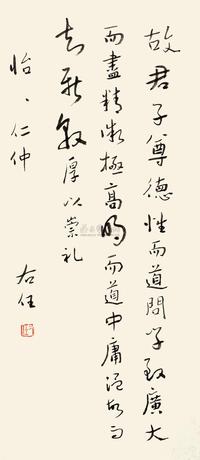 故君子尊德性而道問学致廣大
而盡精微極高明而道中庸温故而
知新敦厚以崇礼
怡、仁仲
右任